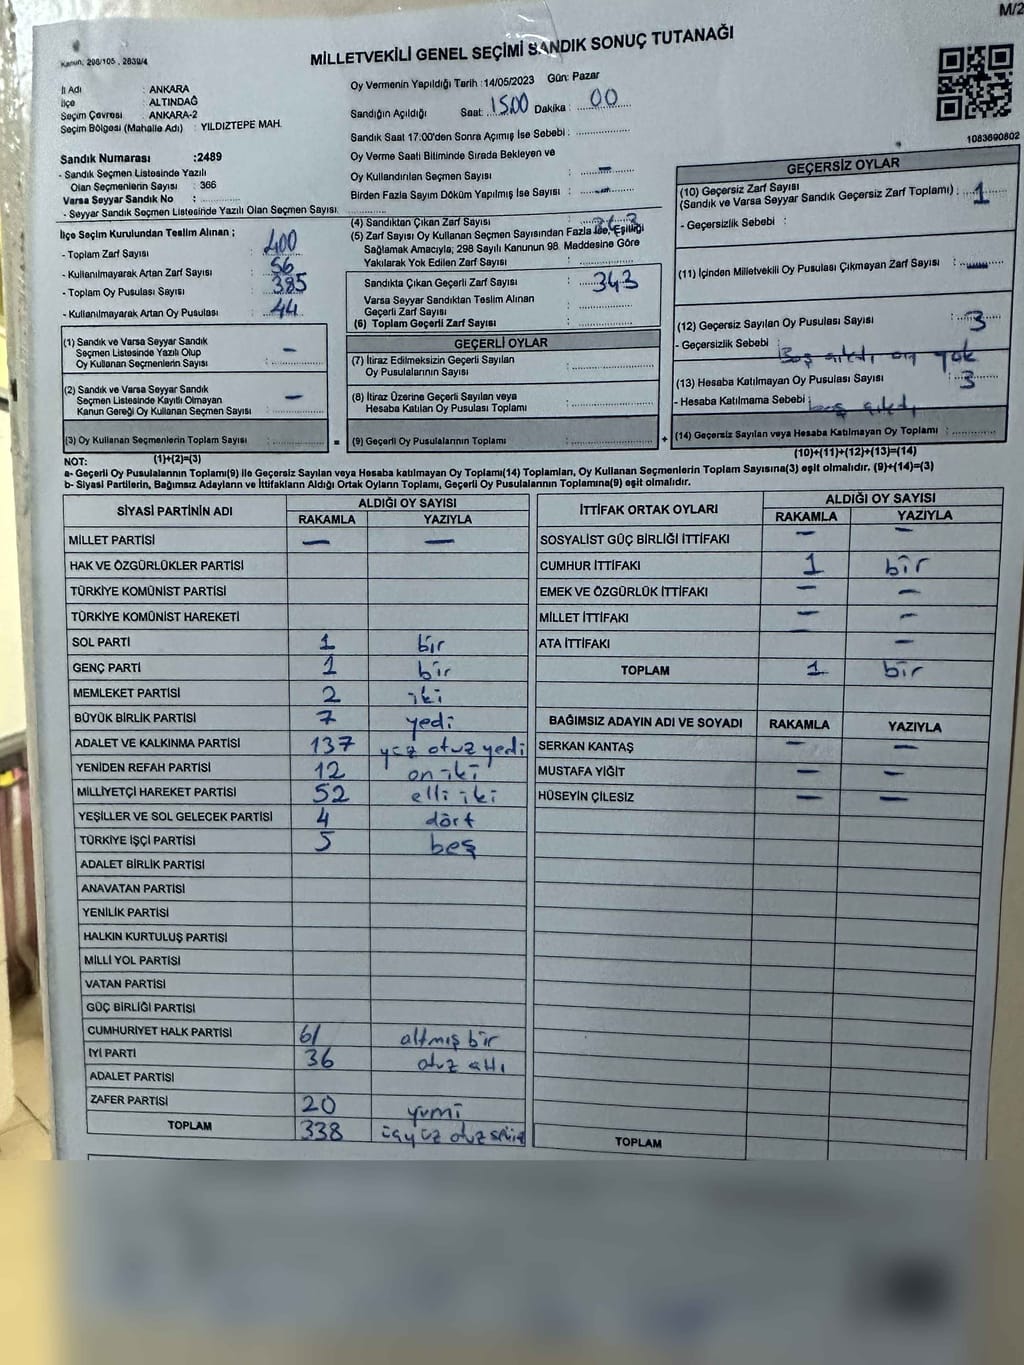 M/2
Kanun: 298/105 , 2839/4
MİLLETVEKİLİ GENEL SEÇİMİ SANDIK SONUÇ TUTANAĞI
İl Adı : ANKARA
İlçe : ALTINDAĞ
Seçim Çevresi : ANKARA-2
Seçim Bölgesi (Mahalle Adı) : YILDIZTEPE MAH.
Sandık Numarası :2489
- Sandık Seçmen Listesinde Yazılı
Olan Seçmenlerin Sayısı : 366
Varsa Seyyar Sandık No :
- Seyyar Sandık Seçmen Listesinde Yazılı Olan Seçmen Sayısı:
Oy Vermenin Yapıldığı Tarih :14/05/2023 Gün: Pazar
Sandığın Açıldığı Saat: 1500 Dakika : 00
Sandık Saat 17:00'den Sonra Açımış İse Sebebi :
Oy Verme Saati Bitiminde Sırada Bekleyen ve
Oy Kullandırılan Seçmen Sayısı : –
Birden Fazla Sayım Döküm Yapılmış İse Sayısı : –
1083690802
İlçe Seçim Kurulundan Teslim Alınan ;
- Toplam Zarf Sayısı : 400
- Kullanılmayarak Artan Zarf Sayısı : 56
- Toplam Oy Pusulası Sayısı : 385
- Kullanılmayarak Artan Oy Pusulası : 44
(1) Sandık ve Varsa Seyyar Sandık
Seçmen Listesinde Yazılı Olup
Oy Kullanan Seçmenlerin Sayısı : –
(2) Sandık ve Varsa Seyyar Sandık
Seçmen Listesinde Kayıtlı Olmayan
Kanun Gereği Oy Kullanan Seçmen Sayısı : –
(3) Oy Kullanan Seçmenlerin Toplam Sayısı :
(1)+(2)=(3)
(4) Sandıktan Çıkan Zarf Sayısı : 343
(5) Zarf Sayısı Oy Kullanan Seçmen Sayısından Fazla İse, Eşitliği
Sağlamak Amacıyla, 298 Sayılı Kanunun 98. Maddesine Göre
Yakılarak Yok Edilen Zarf Sayısı :
Sandıkta Çıkan Geçerli Zarf Sayısı : 343
Varsa Seyyar Sandıktan Teslim Alınan
Geçerli Zarf Sayısı :
(6) Toplam Geçerli Zarf Sayısı :
GEÇERLİ OYLAR
(7) İtiraz Edilmeksizin Geçerli Sayılan
Oy Pusulalarının Sayısı :
(8) İtiraz Üzerine Geçerli Sayılan veya
Hesaba Katılan Oy Pusulası Toplamı :
= (9) Geçerli Oy Pusulalarının Toplamı : +
GEÇERSİZ OYLAR
(10) Geçersiz Zarf Sayısı
(Sandık ve Varsa Seyyar Sandık Geçersiz Zarf Toplamı) : 1
- Geçersizlik Sebebi :
(11) İçinden Milletvekili Oy Pusulası Çıkmayan Zarf Sayısı :
(12) Geçersiz Sayılan Oy Pusulası Sayısı : 3
- Geçersizlik Sebebi : Boş çıktı oy yok
(13) Hesaba Katılmayan Oy Pusulası Sayısı : 3
- Hesaba Katılmama Sebebi : boş çıktı
(14) Geçersiz Sayılan veya Hesaba Katılmayan Oy Toplamı :
(10)+(11)+(12)+(13)=(14)
NOT:
a- Geçerli Oy Pusulalarının Toplamı(9) ile Geçersiz Sayılan veya Hesaba katılmayan Oy Toplamı(14) Toplamları, Oy Kullanan Seçmenlerin Toplam Sayısına(3) eşit olmalıdır. (9)+(14)=(3)
b- Siyasi Partilerin, Bağımsız Adayların ve İttifakların Aldığı Ortak Oyların Toplamı, Geçerli Oy Pusulalarının Toplamına(9) eşit olmalıdır.
SİYASİ PARTİNİN ADI ALDIĞI OY SAYISI
RAKAMLA YAZIYLA
MİLLET PARTİSİ – –
HAK VE ÖZGÜRLÜKLER PARTİSİ
TÜRKİYE KOMÜNİST PARTİSİ
TÜRKİYE KOMÜNİST HAREKETİ
SOL PARTİ 1 bir
GENÇ PARTİ 1 bir
MEMLEKET PARTİSİ 2 iki
BÜYÜK BİRLİK PARTİSİ 7 yedi
ADALET VE KALKINMA PARTİSİ 137 yüz otuz yedi
YENİDEN REFAH PARTİSİ 12 on iki
MİLLİYETÇİ HAREKET PARTİSİ 52 elli iki
YEŞİLLER VE SOL GELECEK PARTİSİ 4 dört
TÜRKİYE İŞÇİ PARTİSİ 5 beş
ADALET BİRLİK PARTİSİ
ANAVATAN PARTİSİ
YENİLİK PARTİSİ
HALKIN KURTULUŞ PARTİSİ
MİLLİ YOL PARTİSİ
VATAN PARTİSİ
GÜÇ BİRLİĞİ PARTİSİ
CUMHURİYET HALK PARTİSİ 61 altmış bir
İYİ PARTİ 36 otuz altı
ADALET PARTİSİ
ZAFER PARTİSİ 20 yırmi
TOPLAM 338 üçyüz otuz sekiz
İTTİFAK ORTAK OYLARI ALDIĞI OY SAYISI
RAKAMLA YAZIYLA
SOSYALIST GÜÇ BİRLİĞİ İTTİFAKI – –
CUMHUR İTTİFAKI 1 bir
EMEK VE ÖZGÜRLÜK İTTİFAKI – –
MİLLET İTTİFAKI – –
ATA İTTİFAKI –
TOPLAM 1 bir
BAĞIMSIZ ADAYIN ADI VE SOYADI RAKAMLA YAZIYLA
SERKAN KANTAŞ – –
MUSTAFA YİĞİT – –
HÜSEYİN ÇİLESİZ – –
TOPLAM